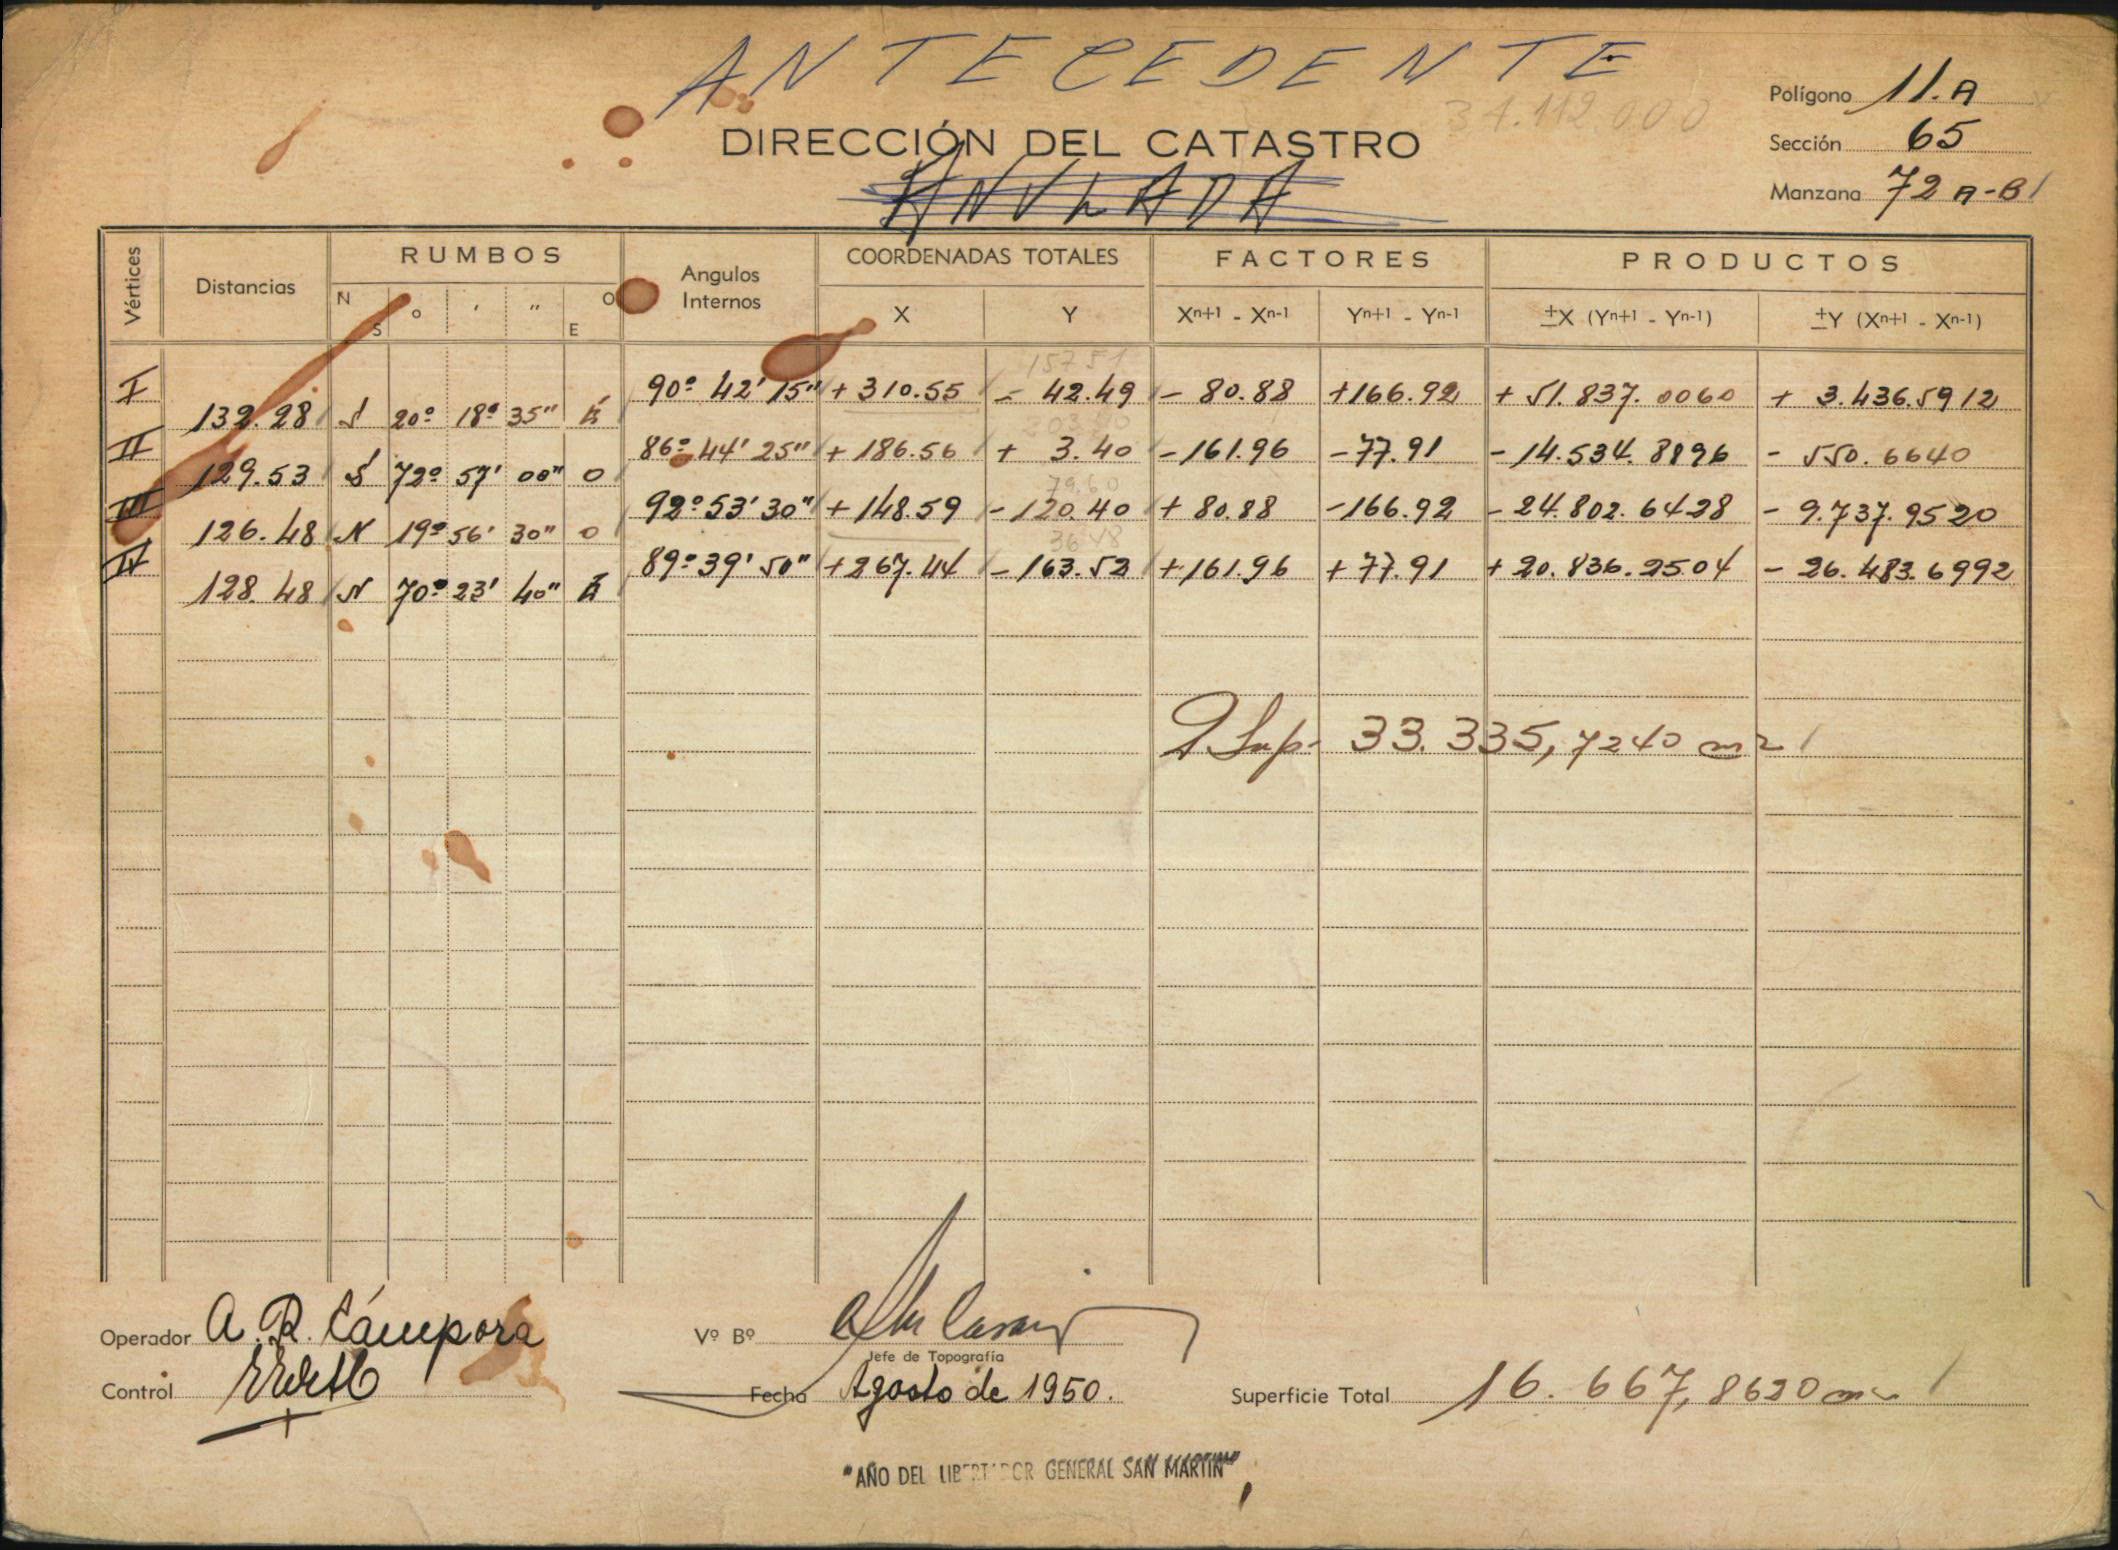 ANTECEDENTE
31.112.000
Polígono 11.A
DIRECCIÓN DEL CATASTRO
Sección 65
ANULADA
Manzana 72 A-B
Vértices Distancias RUMBOS Angulos Internos COORDENADAS TOTALES FACTORES PRODUCTOS
N S ° ' " O E X Y Xⁿ⁺¹ - Xⁿ⁻¹ Yⁿ⁺¹ - Yⁿ⁻¹ ±X (Yⁿ⁺¹ - Yⁿ⁻¹) ±Y (Xⁿ⁺¹ - Xⁿ⁻¹)
157 51
I 90º 42' 15" + 310.55 - 42.49 - 80.88 +166.92 + 51.837.0060 + 3.436.5912
132.28 S 20º 18º 35" E
II 86º 44' 25" + 186.56 + 3.40 -161.96 -77.91 -14.534.8896 - 550.6640
129.53 S 72º 57' 00" O
79.60
III 92º 53' 30" + 148.59 -120.40 + 80.88 -166.92 -24.802.6428 - 9.737.9520
126.48 N 19º 56' 30" O
36 48
IV 89º 39' 50" +267.44 -163.52 +161.96 + 77.91 + 20.836.2504 - 26.483.6992
128.48 N 70º 23' 40" E
2 Sup- 33.335,7240 m2
Operador A. R. Cámpora Vº Bº
Jefe de Topografía
Control Fecha Agosto de 1950. Superficie Total 16.667,8620 m2
"AÑO DEL LIBERTADOR GENERAL SAN MARTIN"